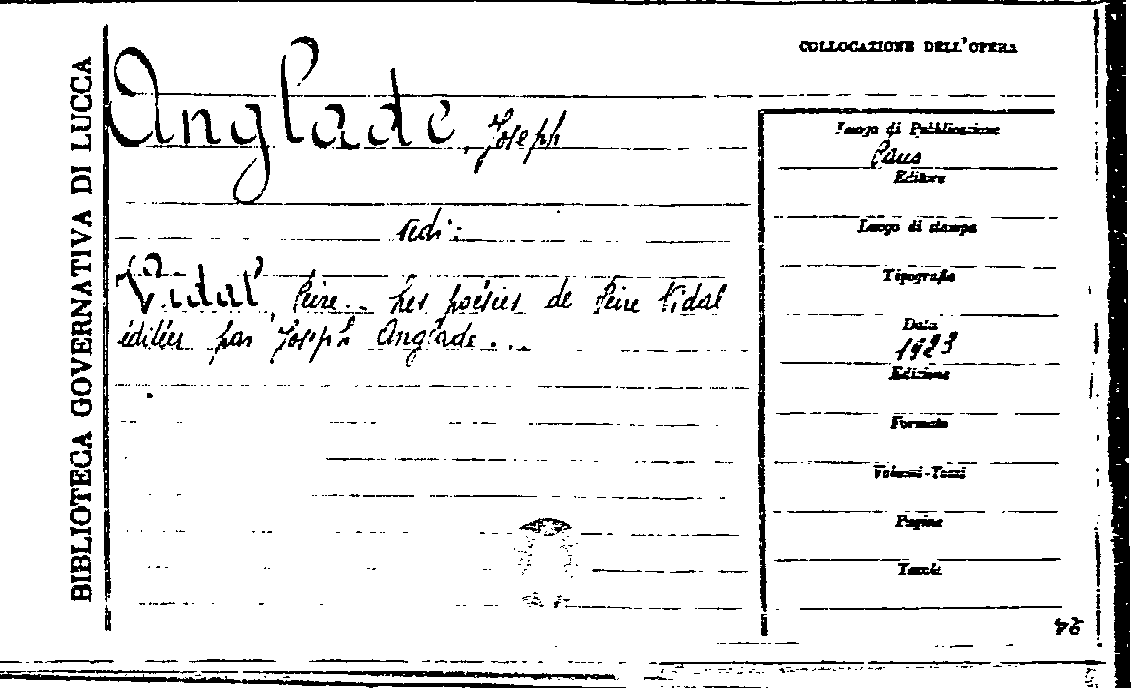 BIBLIOTECA GOVERNATIVA DI LUCCA
COLLOCAZIONE DELL'OPERA
Anglade, Joseph
vedi:
Vidal, Peire... Les poésies de Peire Vidal
éditées par Joseph Anglade...
Luogo di Pubblicazione
Paris
Editore
Luogo di stampa
Tipografia
Data
1923
Edizione
Formato
Volumi-Tomi
Pagine
Tavole